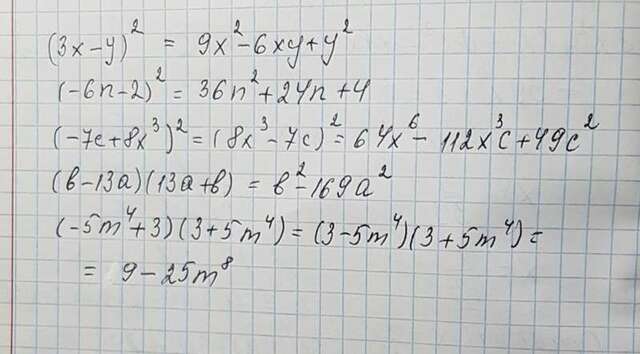 (3x-y)² = 9x²-6xy+y²
(-6n-2)² = 36n²+24n+4
(-7c+8x³)² = (8x³-7c)² = 64x⁶-112x³c+49c²
(в-13a)(13a+в) = в²-169a²
(-5m⁴+3)(3+5m⁴) = (3-5m⁴)(3+5m⁴) =
= 9-25m⁸